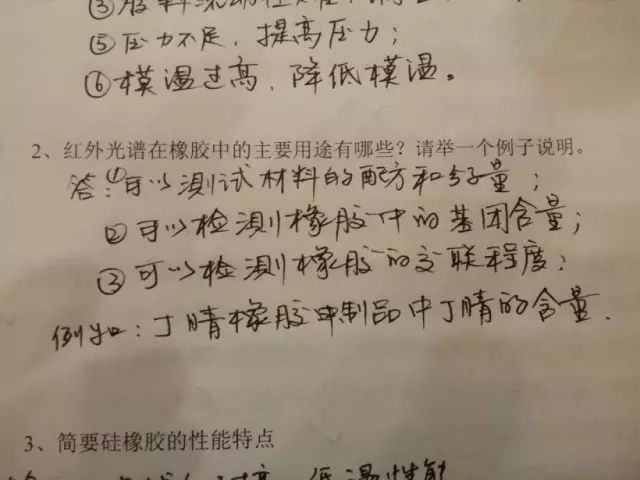 ⑤压力不足，提高压力；
⑥模温过高，降低模温。
2、红外光谱在橡胶中的主要用途有哪些？请举一个例子说明。
答：①可以测试材料的配方和含量；
②可以检测橡胶中的基团含量；
③可以检测橡胶的交联程度；
例如：丁晴橡胶制品中丁晴的含量.
3、简要硅橡胶的性能特点
低温性能